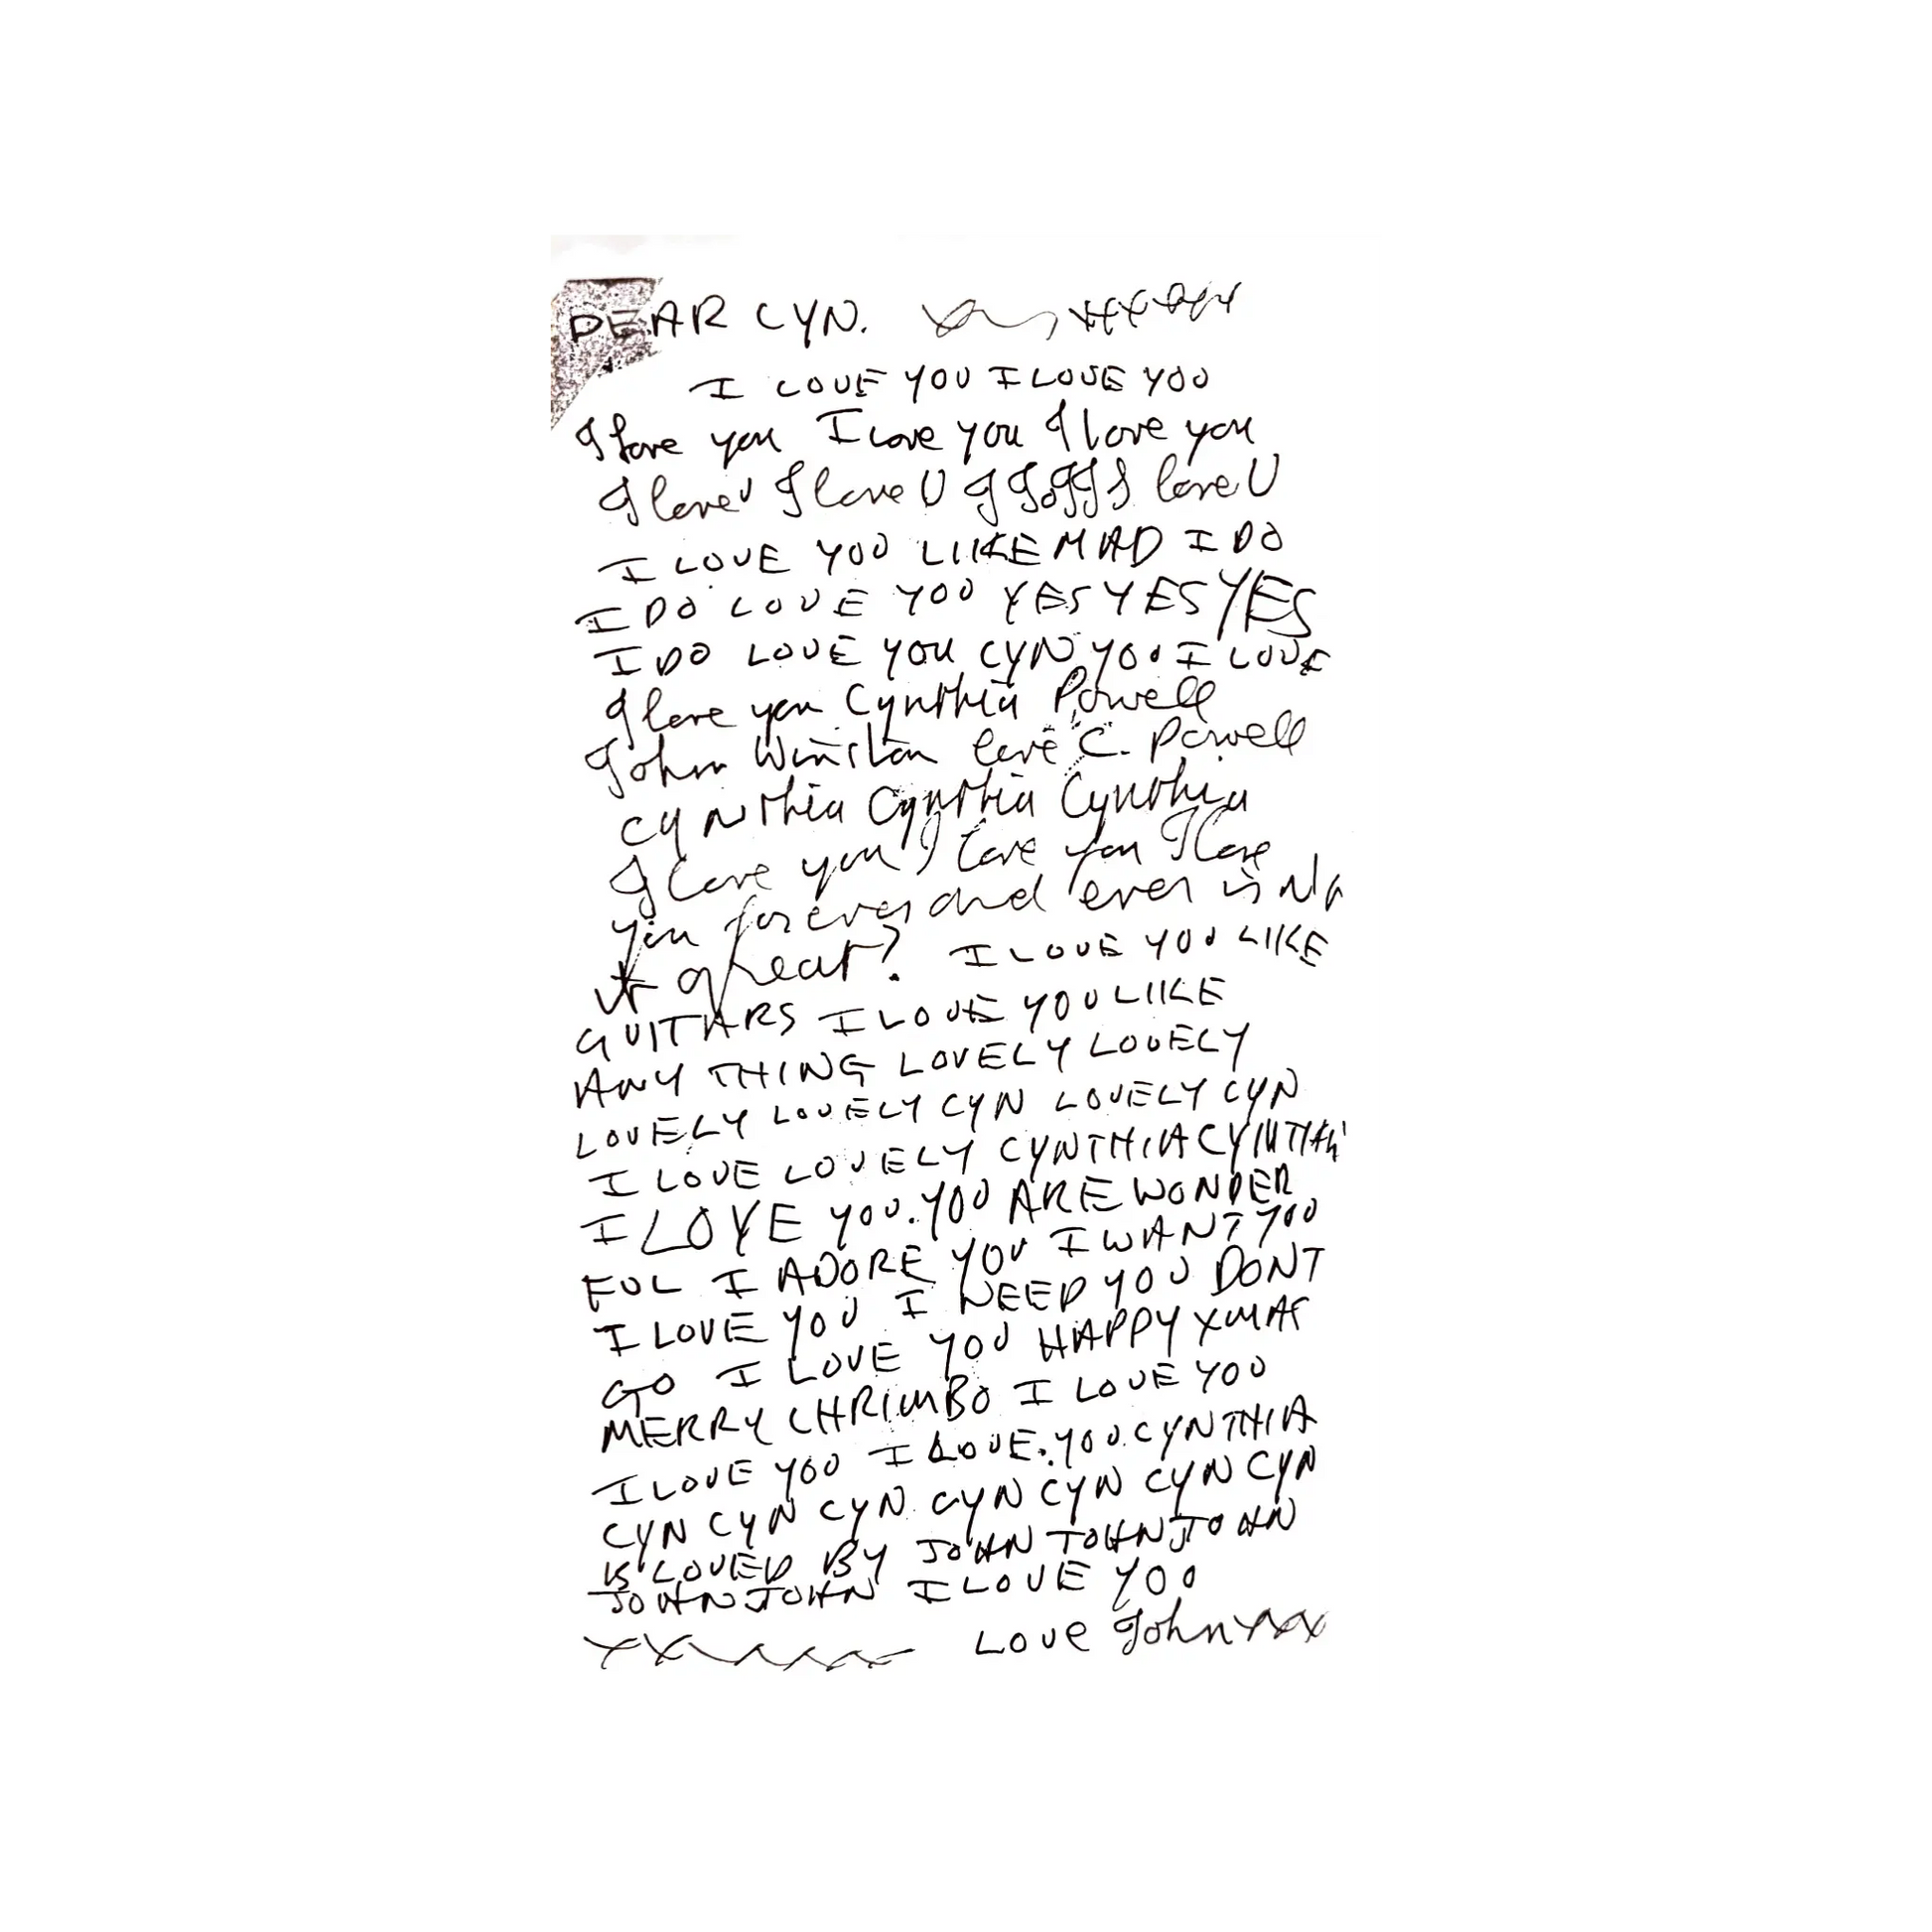 DEAR CYN.
I LOVE YOU I LOVE YOU
I love you I Love you I love you
I love U I love U I I I I I I love U
I LOVE YOU LIKE MAD I DO
I DO LOVE YOU YES YES YES
I DO LOVE YOU CYN YOU I LOVE
I love you Cynthia Powell
John Winston love C. Powell
CYNthia Cynthia Cynthia
I love you I love you I love
you forever and ever isNt
it great? I LOVE YOU LIKE
GUITARS I LOVE YOU LIKE
ANY THING LOVELY LOVELY
LOVELY LOVELY CYN LOVELY CYN
I LOVE LOVELY CYNTHIA CYNTHI
I LOVE YOU. YOU ARE WONDER
FUL I ADORE YOU I WANT YOU
I LOVE YOU I NEED YOU DONT
GO I LOVE YOU HAPPY XMAS
MERRY CHRIMBO I LOVE YOU
I LOVE YOU I LOVE. YOU. CYNTHIA
CYN CYN CYN CYN CYN CYN CYN
IS LOVED BY JOHN JOHN JOHN
JOHN JOHN I LOVE YOU
LOVE John xxx